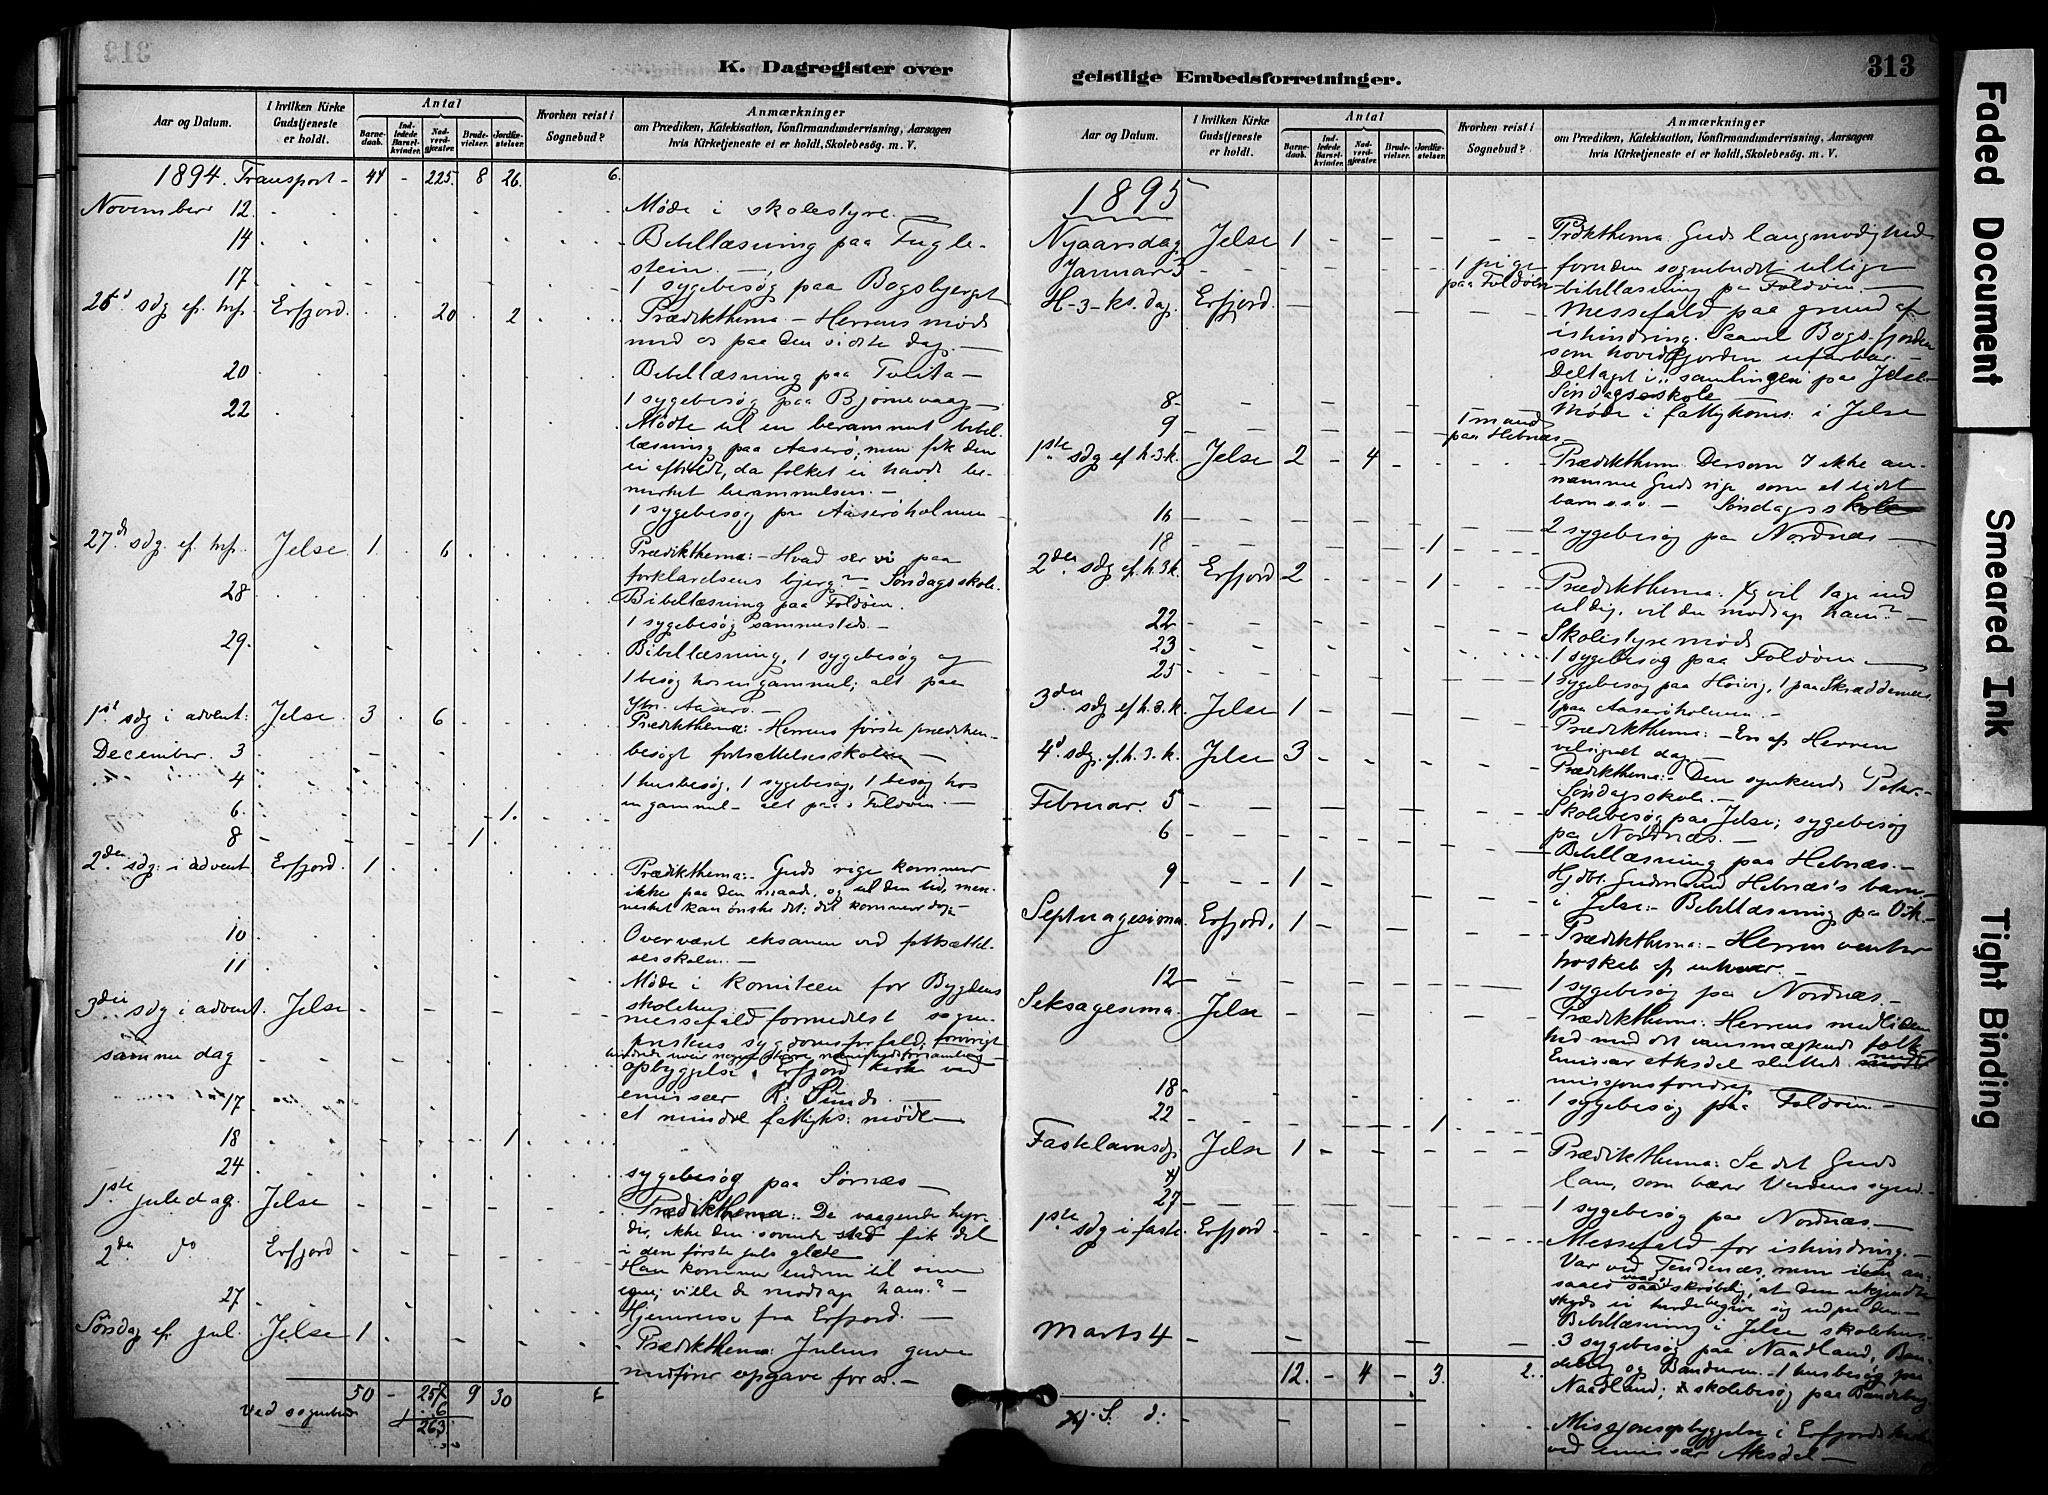 K. Dagregister over
Aar og Datum.
I hvilken Kirke Gudstjeneste er holdt.
Antal
Barnedaab.
Indledede Barselkvinder.
Nadverdgjæster.
Brudevielser.
Jordfæstelser.
Hvorhen reist i Sognebud?
Anmærkninger
om Prædiken, Katekisation, Konfirmandundervisning, Aarsagen
hvis Kirketjeneste ei er holdt, Skolebesøg. m. V.
1894. Transport - 44 - 225. 8 26. 6.
November 12. Møde i skolestyre.
14 Bibellæsning paa Fugle-
stein. -
17. 1 sygebesøg paa Bogsbjerget
26d sdg ef. trf. Erfjord. 20 2 Prædikthema - Herrens møde
med os paa den sidste dag. -
20 Bibellæsning paa Tveita -
22 1 sygebesøg paa Bjørnevaag -
Mødte til en berammet bibel-
læsning paa Aaserø; men fik den
ei afholdt, da folket ei havde be-
merket berammelsen. -
1 sygebesøg paa Aaserøholmen -
27d. sdg. ef. trf. Jelse. 1. 6 Prædikthema: - Hvad ser vi paa
forklarelsens bjerg? - Søndagsskole.
28 Bibellæsning paa Foldøen.
1 sygebesøg sammesteds. -
29. Bibellæsning, 1 sygebesøg og
1 besøg hos en gammel; alt paa
Ytr. Aaserø. -
1st sdg i advent. Jelse. 3 6 Prædikthema: - Herrens første prædiken -
December. 3 besøgt fortsættelsesskolen -
4 1 husbesøg, 1 sygebesøg, 1 besøg hos
6. 1. en gammel - alt paa Foldøen. -
8 1
2den sdg. i advent Erfjord. 1 Prædikthema: - Guds rige kommer
ikke paa den maade, og til den tid, men-
nesket kan ønske det; det kommer dog -
10 Overvært eksamen ved fortsættel-
sesskolen. -
11 Møde i komiteen for Bygdens
skolehus
3die sdg i advent. Jelse messefald formedelst sogne-
prestens sygdomsforfald, forøvrigt
samme dag opbyggelse i Erfjord kirke ved
emissær R. Sunde. -
17 et mindre fattigks: møde -
18 1
24 sygebesøg paa Sørnæs -
1ste juledag. Jelse Prædikthema: De vaagende hyr-
der, ikke den sovende stad fik del
i den første juls glæde
2den do Erfjord Han kommer endnu til sine
egne; ville de modtage ham? -
27 Hjemreise fra Erfjord. -
Søndag ef. jul. Jelse 1 Prædikthema: Julens gave
medfører opgave for os. -
50 - 257. 9 30 6
Ved sognebud 6
263

geistlige Embedsforretninger.
313
Aar og Datum.
I hvilken Kirke Gudstjeneste er holdt.
Antal
Barnedaab.
Indledede Barselkvinder.
Nadverdgjæster.
Brudevielser.
Jordfæstelser.
Hvorhen reist i Sognebud?
Anmærkninger
om Prædiken, Katekisation, Konfirmandundervisning, Aarsagen
hvis Kirketjeneste ei er holdt, Skolebesøg. m. V.
1895
Nyaarsdag Jelse 1 Prdkthema: Guds langmodighed
Januar 3 1 pige paa Foldøen foruden sognebudet tillige
bibellæsning paa Foldøen. -
H-3-ks. dag. Erfjord. Messefald paa grund af
ishindring. Saavel Bogsfjorden
som hovedfjorden ufarbar. -
Deltaget i samlingen paa Jelse
8 Søndagsskole
9 1 mand paa Hebnæs Møde i fattigkoms: i Jelse
1ste sdg ef. h. 3. k. Jelse 2 4 Prædikthem Dersom I ikke an-
namme Guds rige som et lidet
barn o.s.v. - Søndagsskole
16 2 sygebesøg paa Nordnæs -
18 1
2den sdg. ef. h. 3 k. Erfjord 2 1 Prædikthema: Jeg vil tage ind
til dig, vil du modtage ham?
22 Skolestyremøde
23 1 sygebesøg paa Foldøen -
25 1 sygebesøg paa Høivig, 1 paa Skræddernes
1 paa Aaserøholmen. -
3die sdg ef. h. 3. k. Jelse 1 Prædikthema: - En af Herren
velsignet dag -
4d sdg. ef. h. 3. k. Jelse 3 Prædikthema: - Den synkende Peter. -
Søndagsskole. -
Februar. 5 Skolebesøg paa Jelse; sygebesøg
paa Nordnæs. -
6 Bibellæsning paa Hebnæs. -
9 1 Hjdbt. Gudmund Hebnæs's barn, -
i Jelse: - Bibellæsning paa Vik. -
Septuagesima. Erfjord. 1 Prædikthema: - Herren venter
troskab af enhver. -
12 1 sygebesøg paa Nordnæs. -
Seksagesima. Jelse Prædikthema: Herrens medliden
hed med det vansmægtende folk
Emissær Aksdel sluttede med
missionsforedrag
18 1 sygebesøg paa Foldøen. -
22 1
Fastelavnsdg Jelse 1 Prædikthema: Se det Guds
x)
lam, som bærer Verdens synd. -
27 1 sygebesøg paa Nordnæs -
1ste sdg i faste. Erfjord Messefald for ishindring. -
Var ved Tendenæs, men isen an-
saaes saa skrøbelig, at den ukjendte
skyds ei turde begive sig ud paa den. -
Marts 4 Bibellæsning i Jelse skolehus. -
3 sygebesøg paa Naadland, Ban-
deberg og Banderen. - 1 husbesøg paa
Naadland; skolebesøg paa Bandeberg
12. - 4 - 3. 2.
x) S. d: Missionsopbyggelse i Erfjords kirke
ved emissær Aksdel -
Faded Document
Smeared Ink
Tight Binding